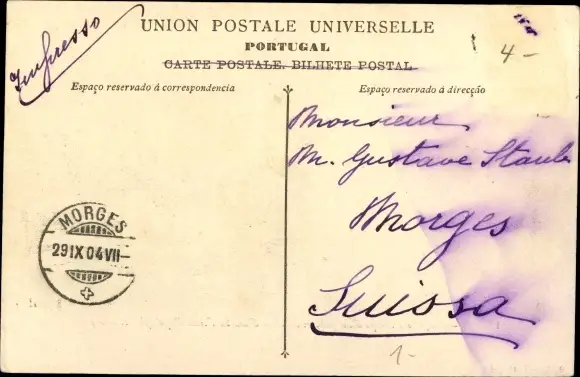 Impresso
UNION POSTALE UNIVERSELLE
PORTUGAL
CARTE POSTALE. BILHETE POSTAL
4-
Espaço reservado á correspondencia
Espaço reservado á direcção
Monsieur
M. Gustave Staub
Morges
Suissa
MORGES
29 IX 04 VII-
1-